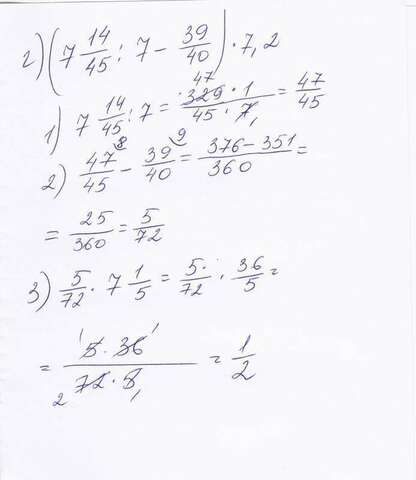 2) (7 14/45 : 7 - 39/40) · 7,2
1) 7 14/45 : 7 = 329 · 1 / 45 · 7 = 47/45
47
2) 47/45 - 39/40 = 376 - 351 / 360 =
8 9
= 25/360 = 5/72
3) 5/72 · 7 1/5 = 5 · / 72 · 36/5 =
= 5 · 36 / 72 · 5 = 1/2
1 1
2 1